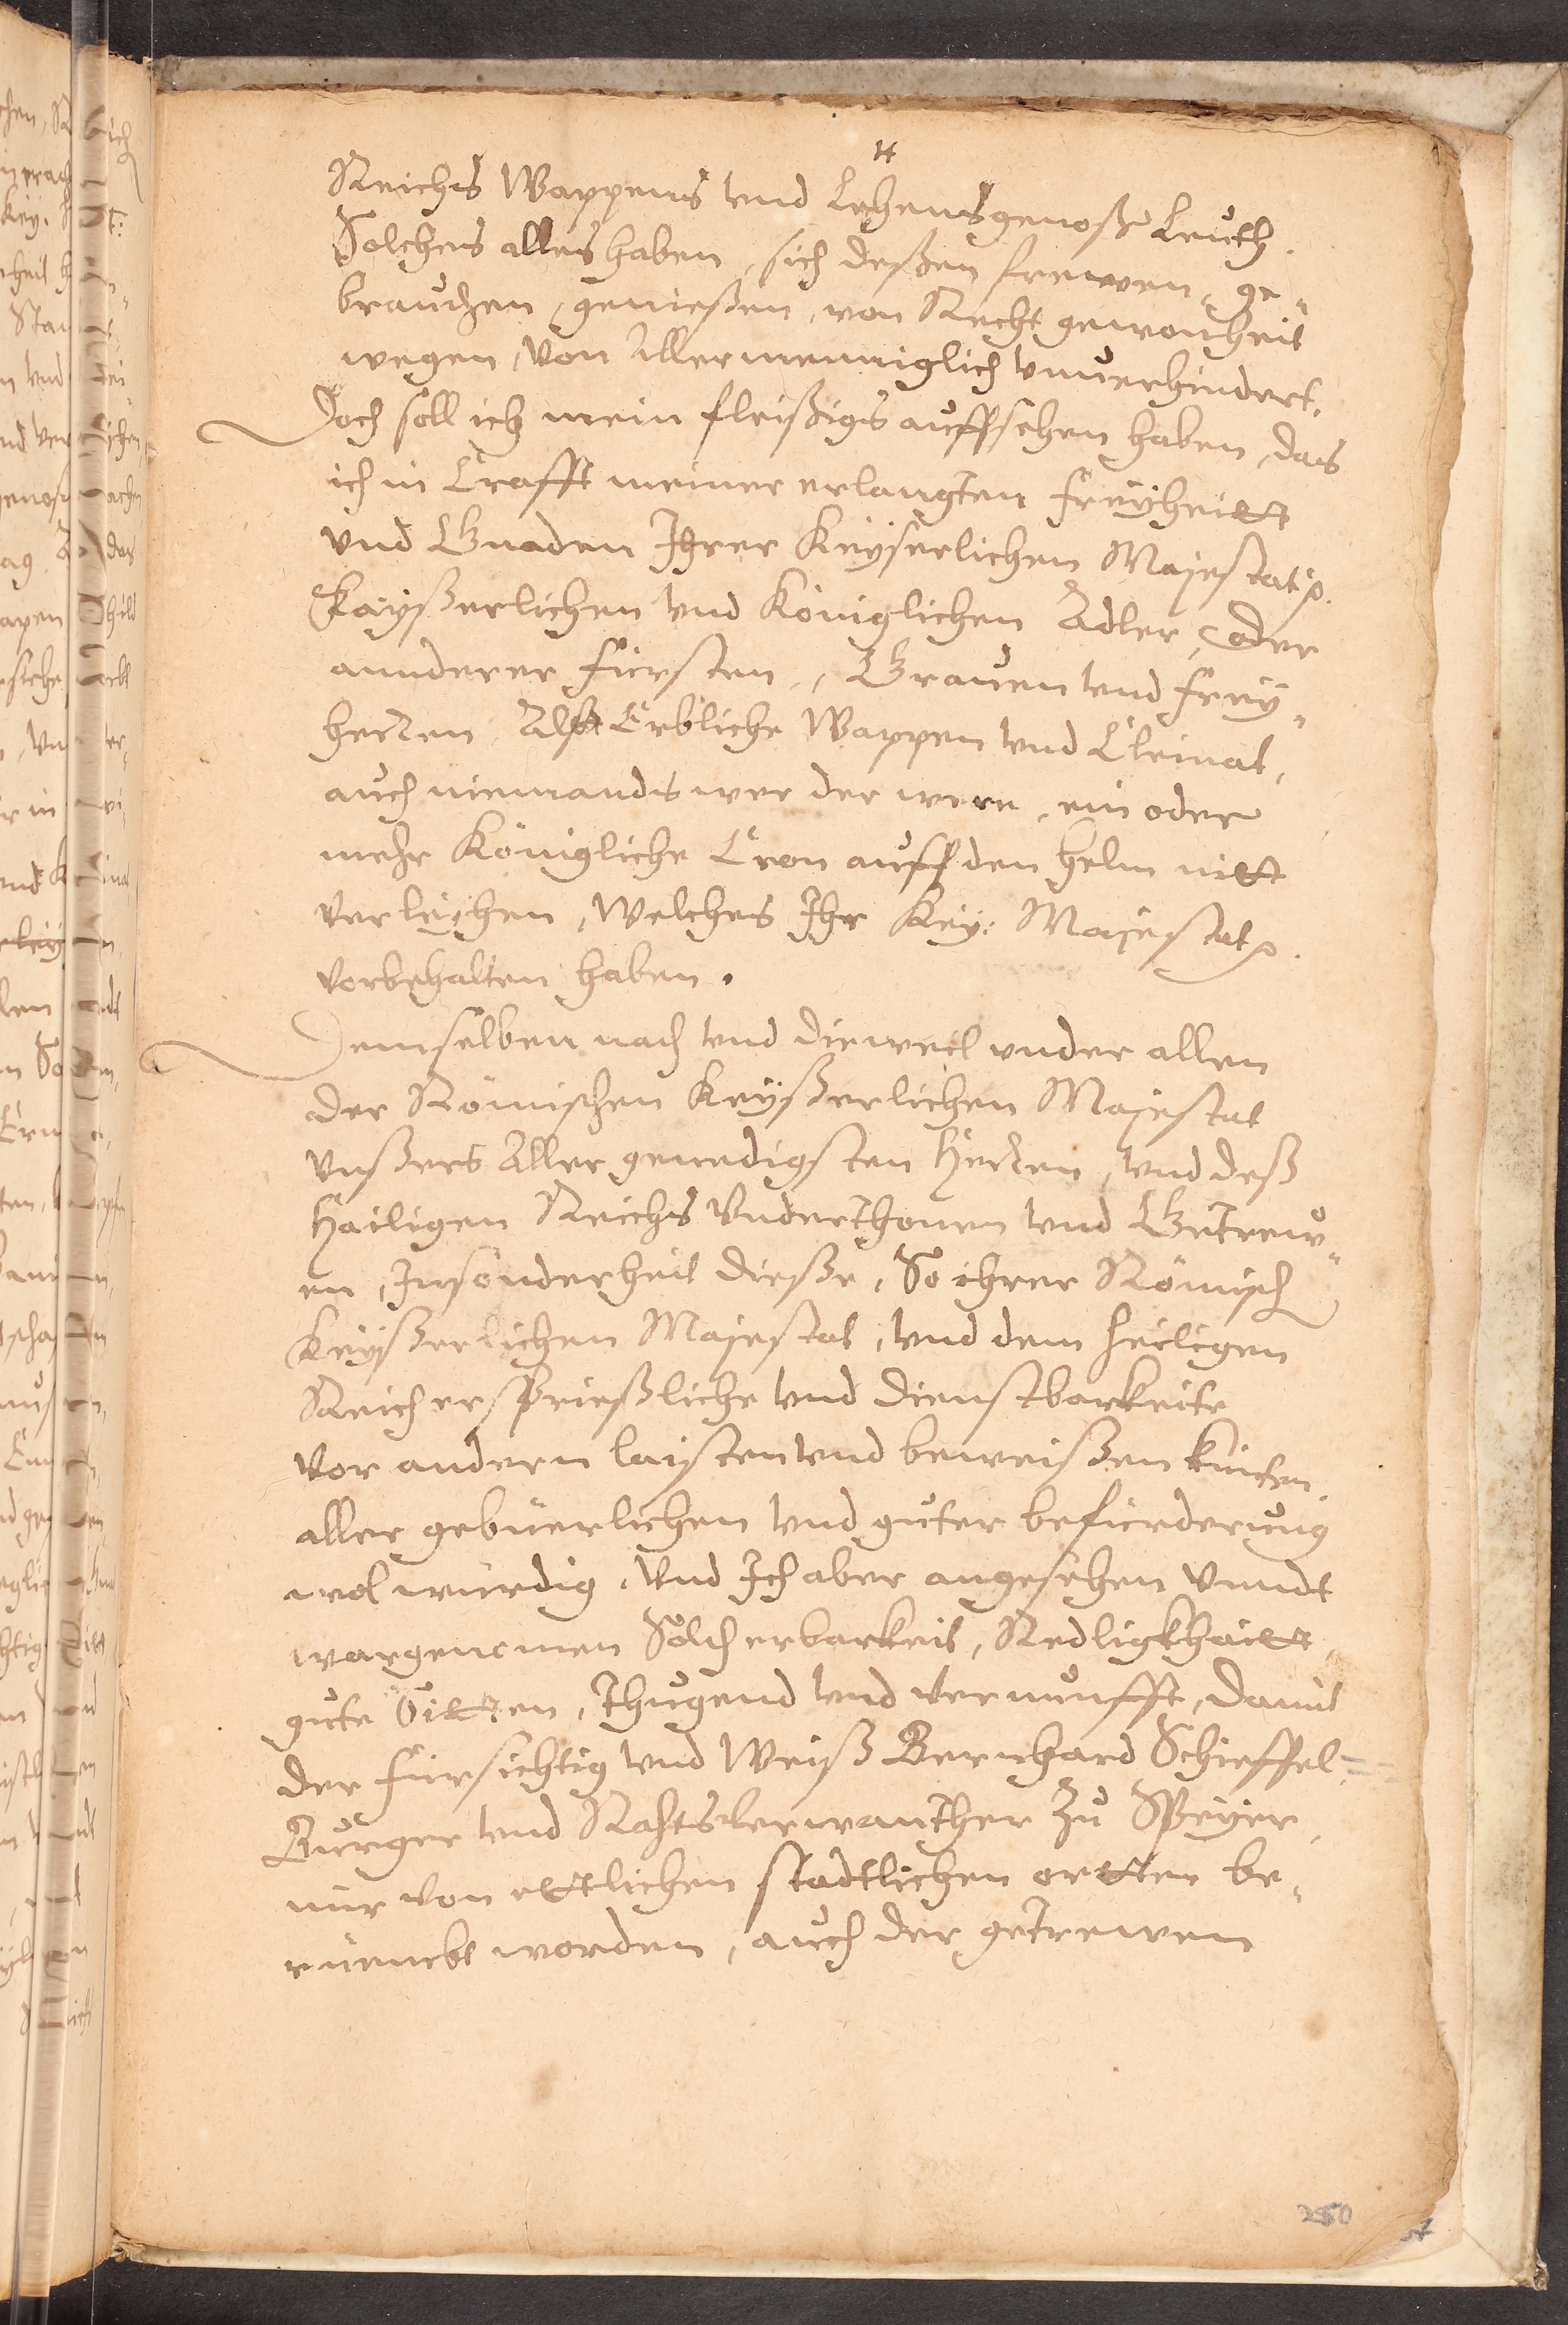 4
Reichs Wappens vnd Lehensgenoße Leuth.
Solches alles haben, sich deßen frewen, ge„
brauchen, genießen, von Recht gewonheit
wegen, von Allermenniglich vnuerhindert.
Doch soll ich mein fleißigs auffsehen haben, das
ich in Crafft meiner erlangten freyheitt
vnd Gnaden Ihrer Keyserlichen Majestat
Kayßerlichen vnd Königlichen Adler, oder
annderer Fürsten, Grauen vnd Frey„
herren Alt Erbliche Wappen vnd Cleinat,
auch niemands wer der were, ein oder
mehr Königliche Cron auff den helm nitt
verleyhen, Welches Ihr Key: Majestat
vorbehalten haben.
Demselben nach vnd dieweil vnder allen
der Römischen Keyßerlichen Majestat
vnßers Aller genedigsten Herren, vnd deß
Hailigen Reichs Vnderthonen vnd Getrew„
en, Insonderheit dieße, So ihrer Römisch
Keyßerlichen Majestat, vnd dem heiligen
Reich ersprießliche vnd dienstbarkeite
vor andern laisten vnd beweißen
aller gebüerlichen vnd guter befürderung
wol würdig, Vnd Ich aber angesehen vnndt
wargenomen Solch erbarkeit, Redligkhaitt,
gute Sitten, thugend vnd vernunfft, damit
der fürsichtig vnd Weiß Bernhard Schieffel
Burger vnd Rahtsverwanther Zu Speyer,
mir von ettlichen stadtlichen ortten be„
rüembt worden, auch der getrewen
250